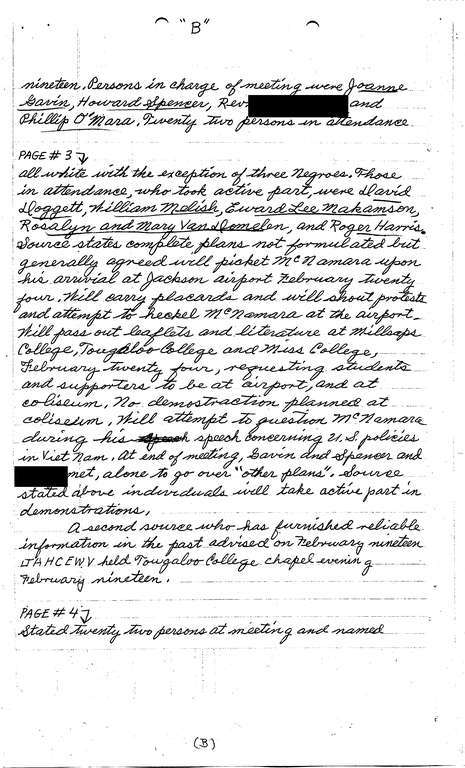 "B"
nineteen. Persons in charge of meeting were Joanne
Gavin, Howard Spencer, Rev. and
Phillip O'Mara. Twenty two persons in attendance
PAGE # 3
all white with the exception of three Negroes. Those
in attendance, who took active part, were David
Doggett, William Melish, Eward Lee Makamson,
Rosalyn and Mary VanDomelen, and Roger Harris.
Source states complete plans not formulated but
generally agreed will picket McNamara upon
his arrivial at Jackson airport February twenty
four. Will carry placards and will shout protests
and attempt to heckel McNamara at the airport.
Will pass out leaflets and literature at Millsaps
College, Tougaloo College and Miss College,
February twenty four, requesting students
and supporters to be at airport, and at
coliseum. No demostraction planned at
coliseum. Will attempt to question McNamara
during his speech speech concerning U.S. policies
in Viet Nam. At end of meeting, Gavin and Spencer and
met, alone to go over "other plans". Source
stated above individuals will take active part in
demonstrations.
A second source who has furnished reliable
information in the past advised on February nineteen
JAHCEWV held Tougaloo College chapel evening
February nineteen.
PAGE # 4
Stated twenty two persons at meeting and named
(B)